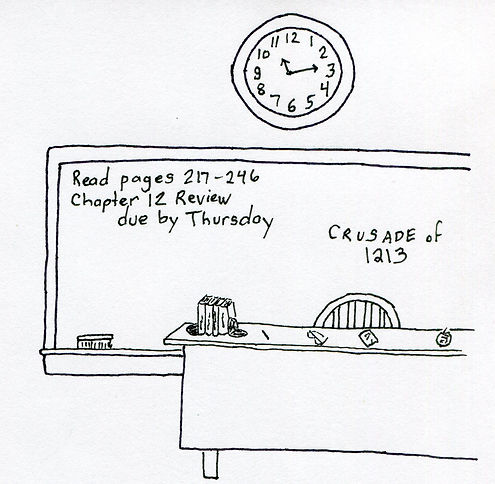 11 12 1
10 2
9 3
8 4
7 6 5
Read pages 217-246
Chapter 12 Review
due by Thursday
CRUSADE of
1213